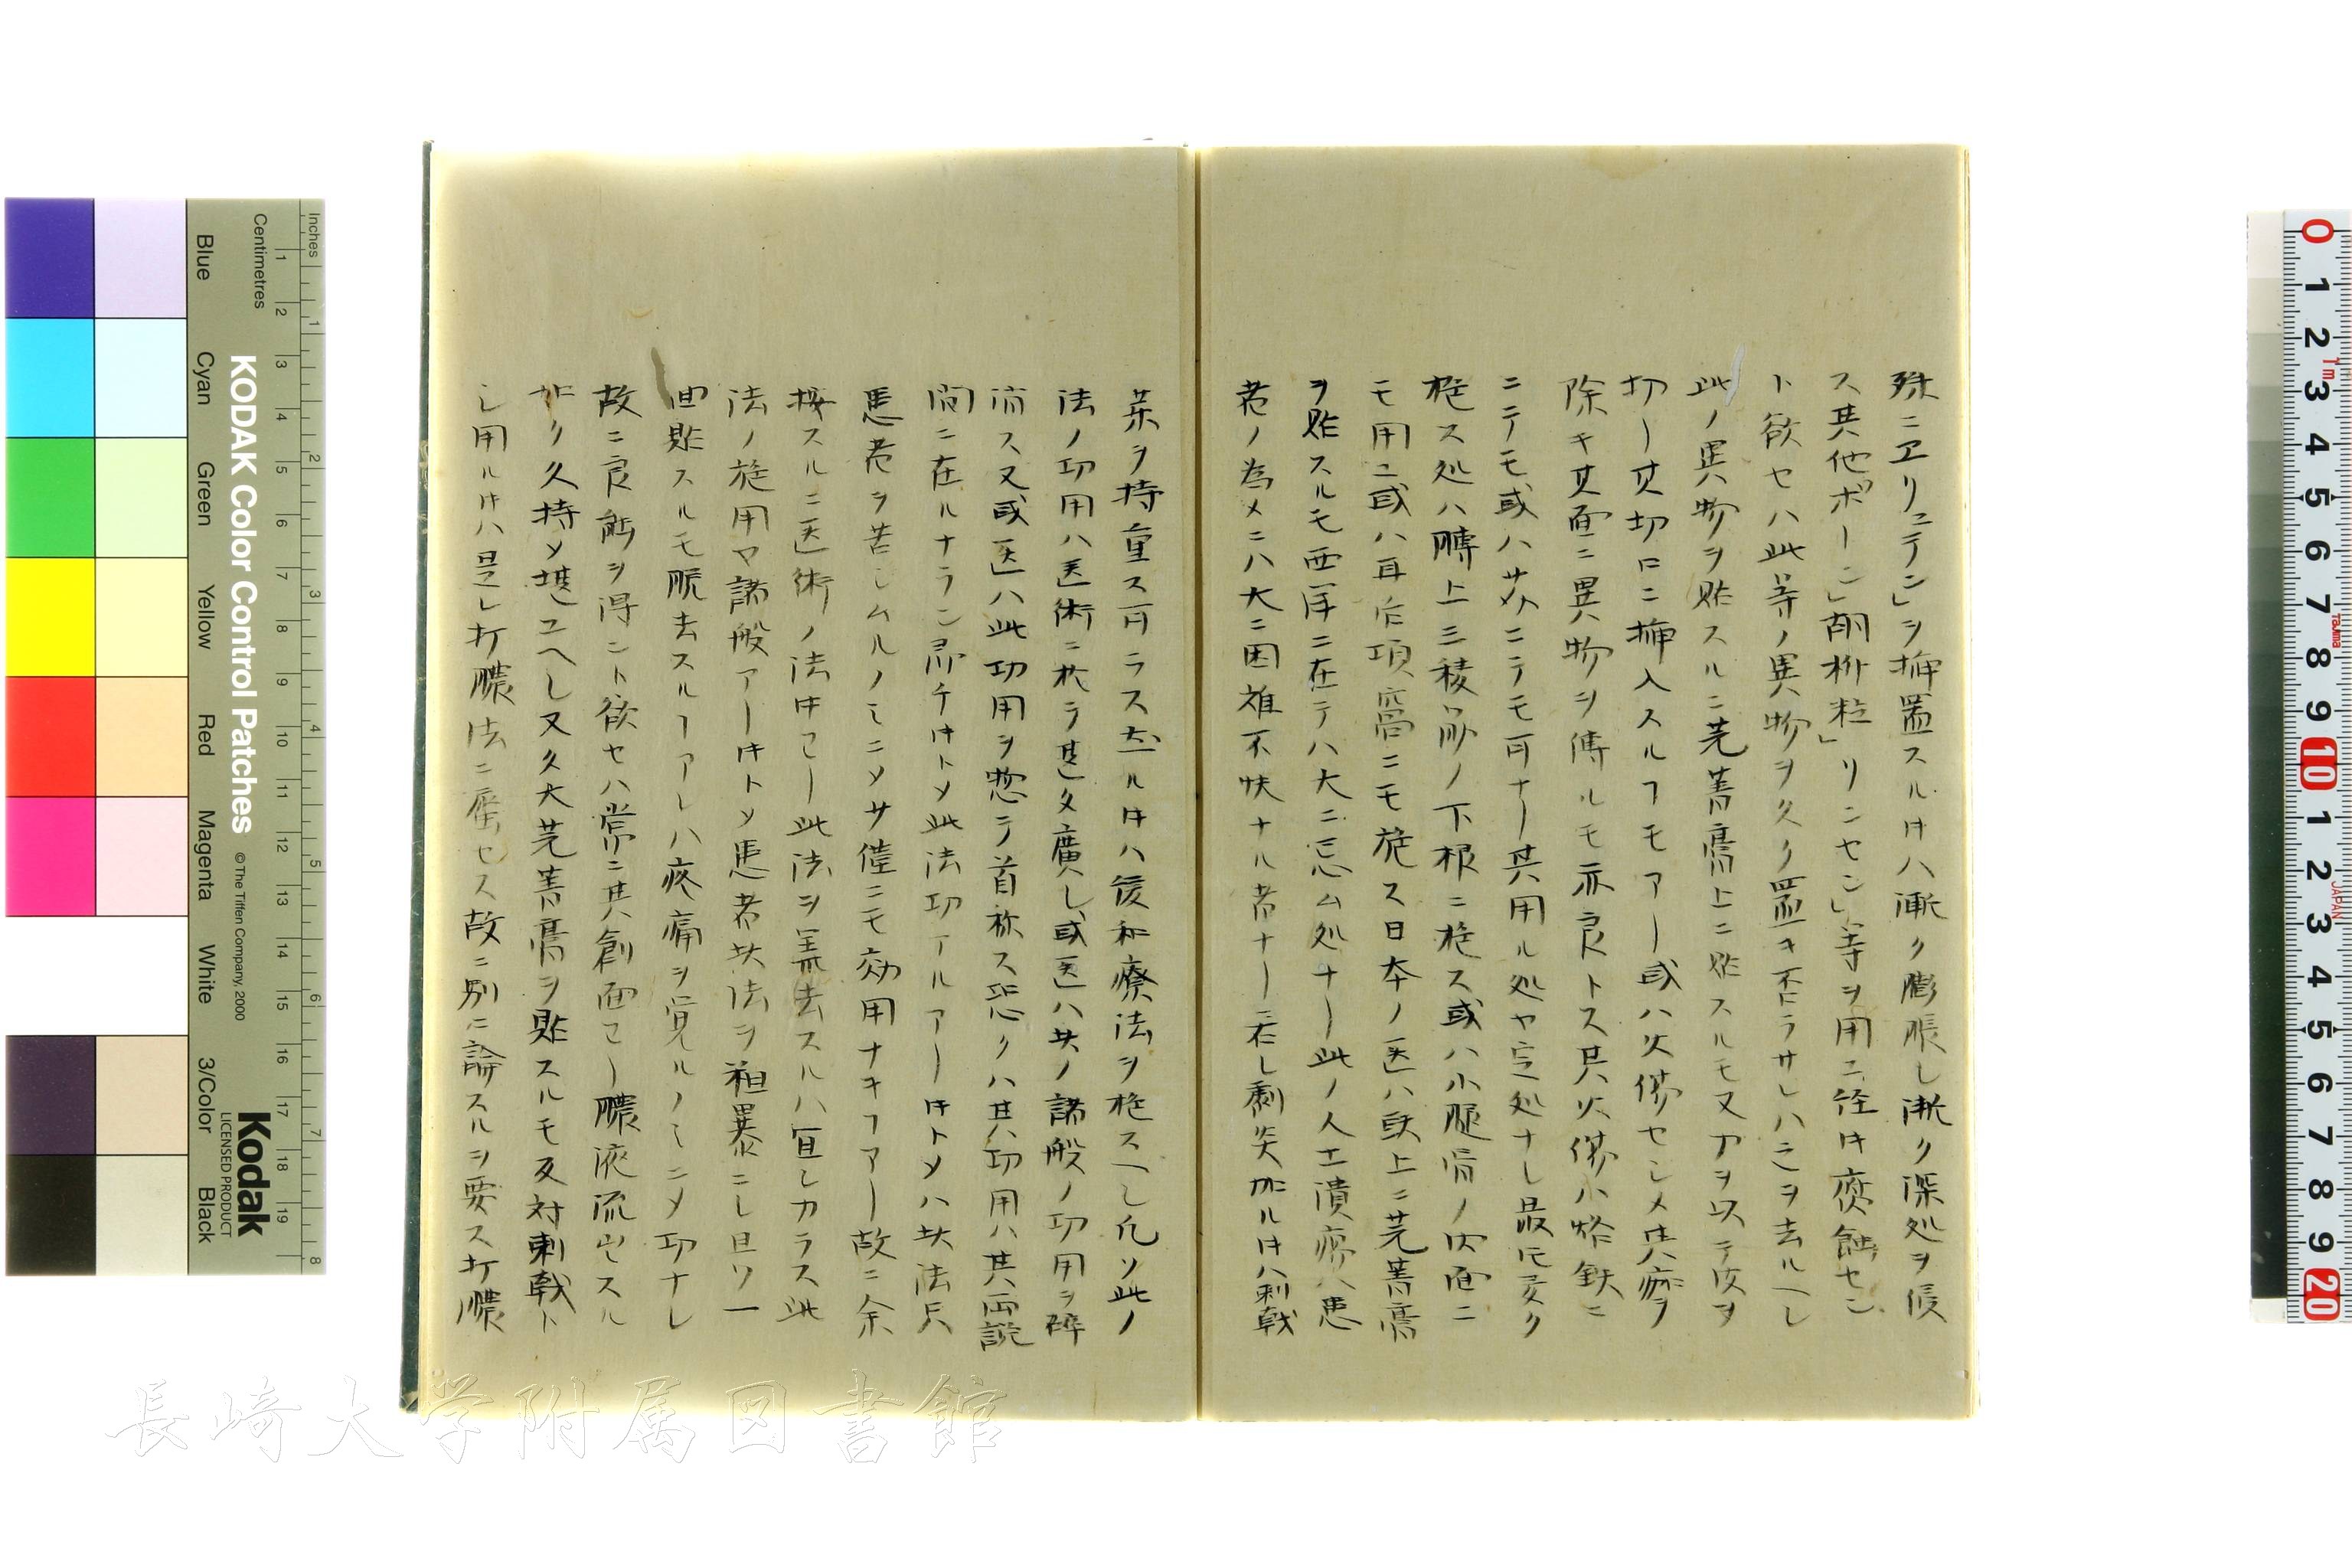 殊ニヱリュテン」ヲ挿置スル時ハ漸ク膨脹シ漸ク深処ヲ侵
ス其他ボーン」削 粒」リンセン」等ヲ用ユ経時腐蝕セン
ト欲セハ此等ノ異物ヲ久ク置キ歪ラサレハ之ヲ去ルヘシ
此ノ異物ヲ貼スルニ芫菁膏上ニ貼スルモ又刀ヲ以テ皮ヲ
切リ其切口ニ挿入スルヿモアリ或ハ火傷セシメ其痂ヲ
除キ其面ニ異物ヲ傅ルモ亦良トス其火傷ハ烙鉄ニ
ニテモ或ハ ニテモ可ナリ其用ル処ヤ定処ナシ最モ多ク
施ス処ハ膊上三稜筋ノ下根ニ施ス或ハ小腿 ノ内面ニ
モ用ユ或ハ耳后項窩ニモ施ス日本ノ医ハ頭上ニ芫菁膏
ヲ貼スルモ西洋ニ在テハ大ニ忌ム処ナリ此ノ人工潰瘍ハ患
者ノ為メニハ大ニ困難不快ナル者ナリ若シ劇炎加ル時ハ刺戟
薬ヲ持重ス可ラス 時ハ後和療法ヲ施スヘシ凡ソ此ノ
法ノ功用ハ医術ニ於テ甚タ廣シ或医ハ其ノ諸般ノ功用ヲ碎
ス又或医ハ此功用ヲ惣テ首称ス恐クハ其功用ハ其両説
間ニ在ルナラン然レ共此法功アルアリ ハ其法只
患者ヲ苦シムルノミニメ 僅ニモ効用ナキヿアリ故ニ余
按スルニ医術ノ法中ヨリ此法ヲ棄去スルハ宜シカラス此
法ノ施用ヤ諸般アリ 患者其法ヲ粗暴ニシ且ツ一
回貼スルモ脱去スルヿアレハ疼痛ヲ覚ルノミニメ功ナシ
故ニ良 ヲ得ント欲セハ常ニ其創面ヨリ膿液流出スル
如ク久持メ堪ユヘシ又久大芫菁膏ヲ貼スルモ反対刺戟ト
シ用ル時ハ是レ打膿法ニ属セス故ニ別ニ論スルヲ要ス打膿
長崎大学附属図書館
KODAK Color Control Patches
© The Tiffen Company, 2000
Kodak
LICENSED PRODUCT
Inches
Centimetres
Blue
Cyan
Green
Yellow
Red
Magenta
White
3/Color
Black